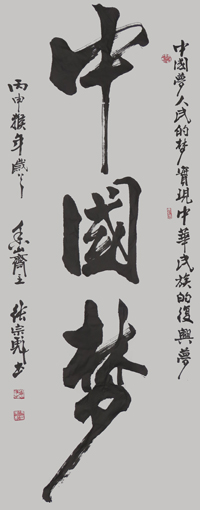 中國夢人民的梦實現中華民族的復興夢
中國梦
丙申猴年歲
齋主
張宗彪书